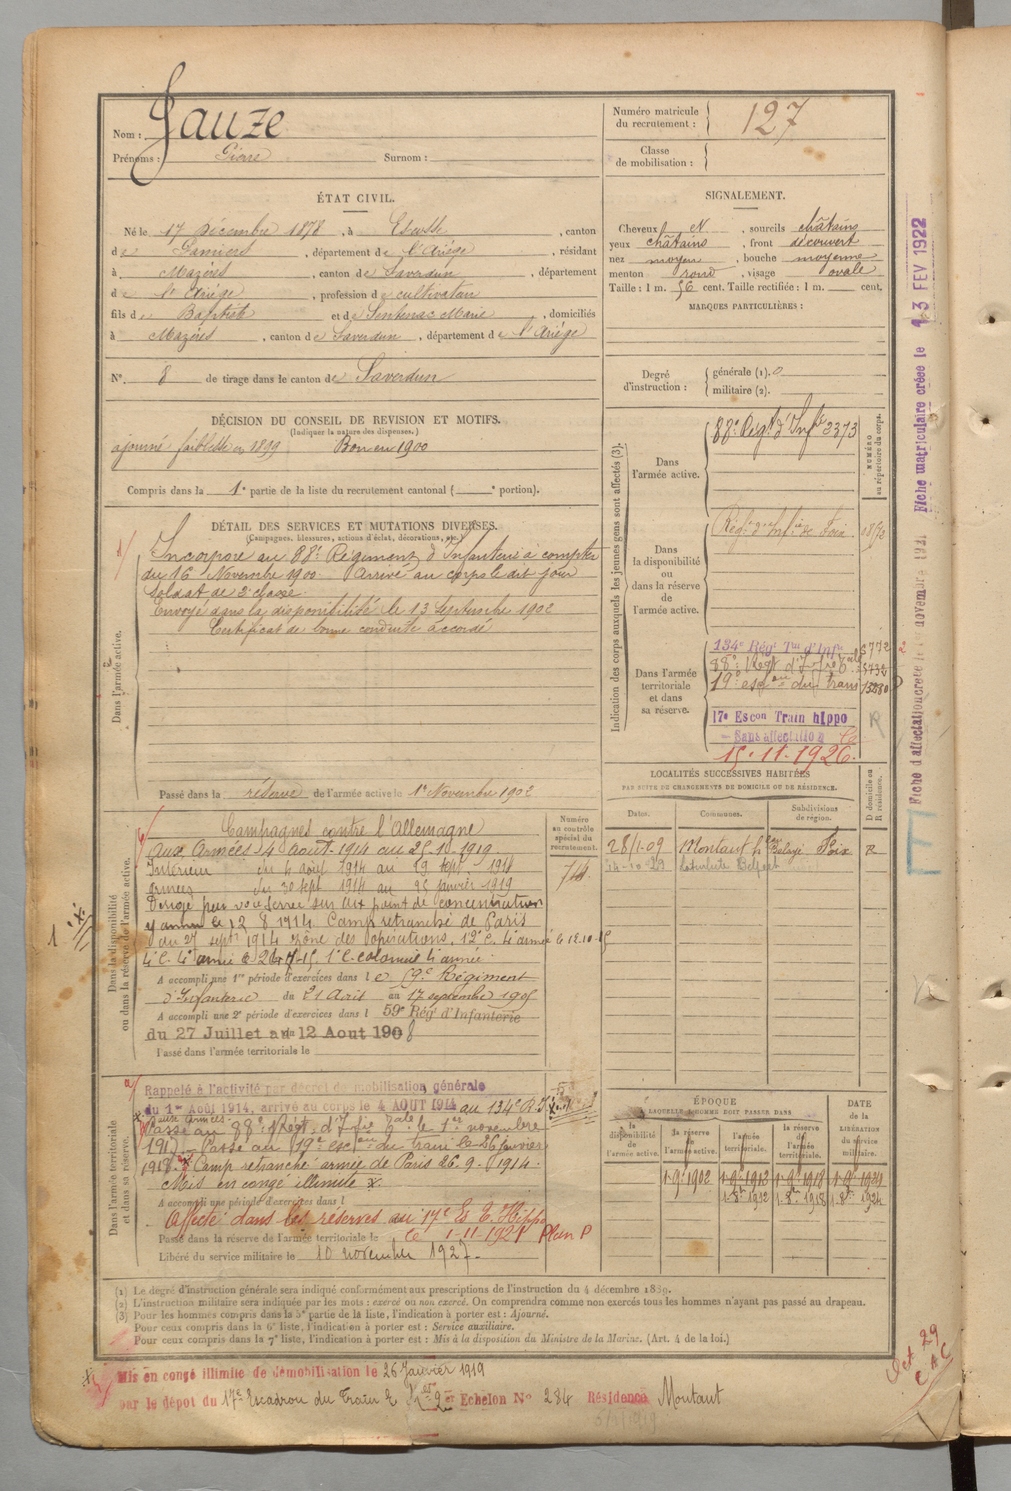 Nom : Jauze
Prénoms : Pierre Surnom :
Numéro matricule du recrutement : 127
Classe de mobilisation :
ÉTAT CIVIL.
Né le 17 Décembre 1878, à , canton
de Pamiers, département de l'Ariège, résidant
à Mazères, canton de Saverdun, département
de l'Ariège, profession de cultivateur
fils de Baptiste et de Sentenac Marie, domiciliés
à Mazères, canton de Saverdun, département de l'Ariège
N° 8 de tirage dans le canton de Saverdun
SIGNALEMENT.
Cheveux N , sourcils châtains
yeux châtains, front découvert
nez moyen, bouche moyenne
menton rond, visage ovale
Taille : 1 m. 56 cent. Taille rectifiée : 1 m. cent.
MARQUES PARTICULIÈRES :
Degré d'instruction : générale (1). 0
militaire (2).
DÉCISION DU CONSEIL DE REVISION ET MOTIFS.
(Indiquer la nature des dispenses.)
ajourné faiblesse en 1899 Bon en 1900
Compris dans la 1e partie de la liste du recrutement cantonal ( e portion).
DÉTAIL DES SERVICES ET MUTATIONS DIVERSES.
(Campagnes, blessures, actions d'éclat, décorations, etc.)
Dans l'armée active.
Incorporé au 88e Régiment d'Infanterie à compter
du 16 Novembre 1900. Arrivé au corps le dit jour
soldat de 2e classe.
Envoyé dans la disponibilité le 13 Septembre 1902
Certificat de bonne conduite accordé
Passé dans la réserve de l'armée active le 1er Novembre 1902
Indication des corps auxquels les jeunes gens sont affectés (3).
NUMÉRO au répertoire du corps.
Dans l'armée active.
88e Régt d'Infie 3373
Dans la disponibilité ou dans la réserve de l'armée active.
Régt d'Infie de Foix
Dans l'armée territoriale et dans sa réserve.
134e Régt Tal d'Infie
88e Régt d'Infie Tale
19e escon du train
17e Escon Train hippo
Sans affectation
15-11-1926.
LOCALITÉS SUCCESSIVES HABITÉES
PAR SUITE DE CHANGEMENTS DE DOMICILE OU DE RÉSIDENCE.
Dates. Communes. Subdivisions de région. D domicile ou R résidence.
28-1-09 Montaut Foix R
Dans la disponibilité ou dans la réserve de l'armée active.
Numéro au contrôle spécial du recrutement.
Campagnes contre l'Allemagne
aux Armées 4 août 1914 au 25.1.1919
Intérieur du 4 août 1914 au 29 sept 1914
armées du 30 sept 1914 au 25 janvier 1919
Dirigé par voie ferrée sur un point de concentration
y arrivé le 12 8 1914 Camp retranché de Paris
du 27 sept 1914 zône des opérations. 12e C. 4e armée
4e C. 4e armée 1e C. colonial 4e armée.
A accompli une 1re période d'exercices dans le 59e Régiment
d'Infanterie du 21 Avril au 17 septembre 1905
A accompli une 2e période d'exercices dans l 59e Rég. d'Infanterie
du 27 Juillet au 12 Aout 1908
Passé dans l'armée territoriale le
Dans l'armée territoriale et dans sa réserve.
Rappelé à l'activité par décret de mobilisation générale
du 1er Août 1914, arrivé au corps le 4 AOUT 1914 au 134e R.I
aux armées
Passé au 88e Régt d'Infie Tale le 1er novembre
1917. Passé au 19e escon du train le 26 janvier
1918. Camp retranché armée de Paris 26. 9. 1914.
Mis en congé illimité x.
A accompli une période d'exercices dans l
Affecté dans les réserves au 17e Es T. Hippo
Passé dans la réserve de l'armée territoriale le
Plan P
Libéré du service militaire le 10 novembre 1927.
ÉPOQUE
A LAQUELLE L'HOMME DOIT PASSER DANS
DATE de la LIBÉRATION du service militaire.
la disponibilité de l'armée active. la réserve de l'armée active. l'armée territoriale. la réserve de l'armée territoriale.
1-9bre 1902 1-9bre 1912 1-9bre 1918 1-9bre 1924
1-8bre 1912 1-8bre 1918 1-8bre 1924
(1) Le degré d'instruction générale sera indiqué conformément aux prescriptions de l'instruction du 4 décembre 1889.
(2) L'instruction militaire sera indiquée par les mots : exercé ou non exercé. On comprendra comme non exercés tous les hommes n'ayant pas passé au drapeau.
(3) Pour les hommes compris dans la 5e partie de la liste, l'indication à porter est : Ajourné.
Pour ceux compris dans la 6e liste, l'indication à porter est : Service auxiliaire.
Pour ceux compris dans la 7e liste, l'indication à porter est : Mis à la disposition du Ministre de la Marine. (Art. 4 de la loi.)
Mis en congé illimité de démobilisation le 26 Janvier 1919
par le dépot du 17e Escadron du Train 2e Echelon N° 284 Résidence Montaut
Fiche matriculaire créée le 13 FEV 1922